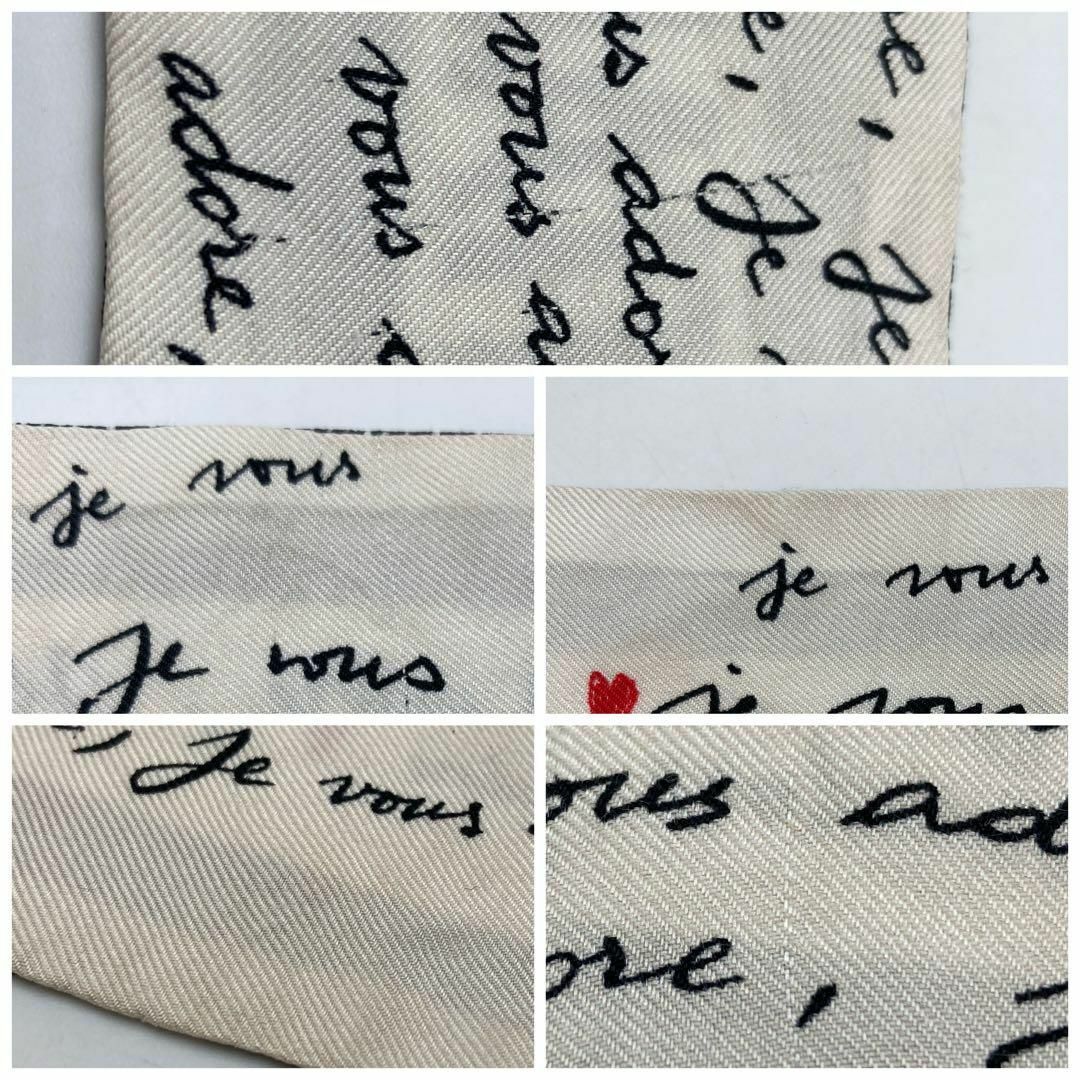 re, Je
e, Je
us ado
vous a
vous
adore,
je vous
Je vous
je vous
je vous
, Je vous
ous ado
ore,